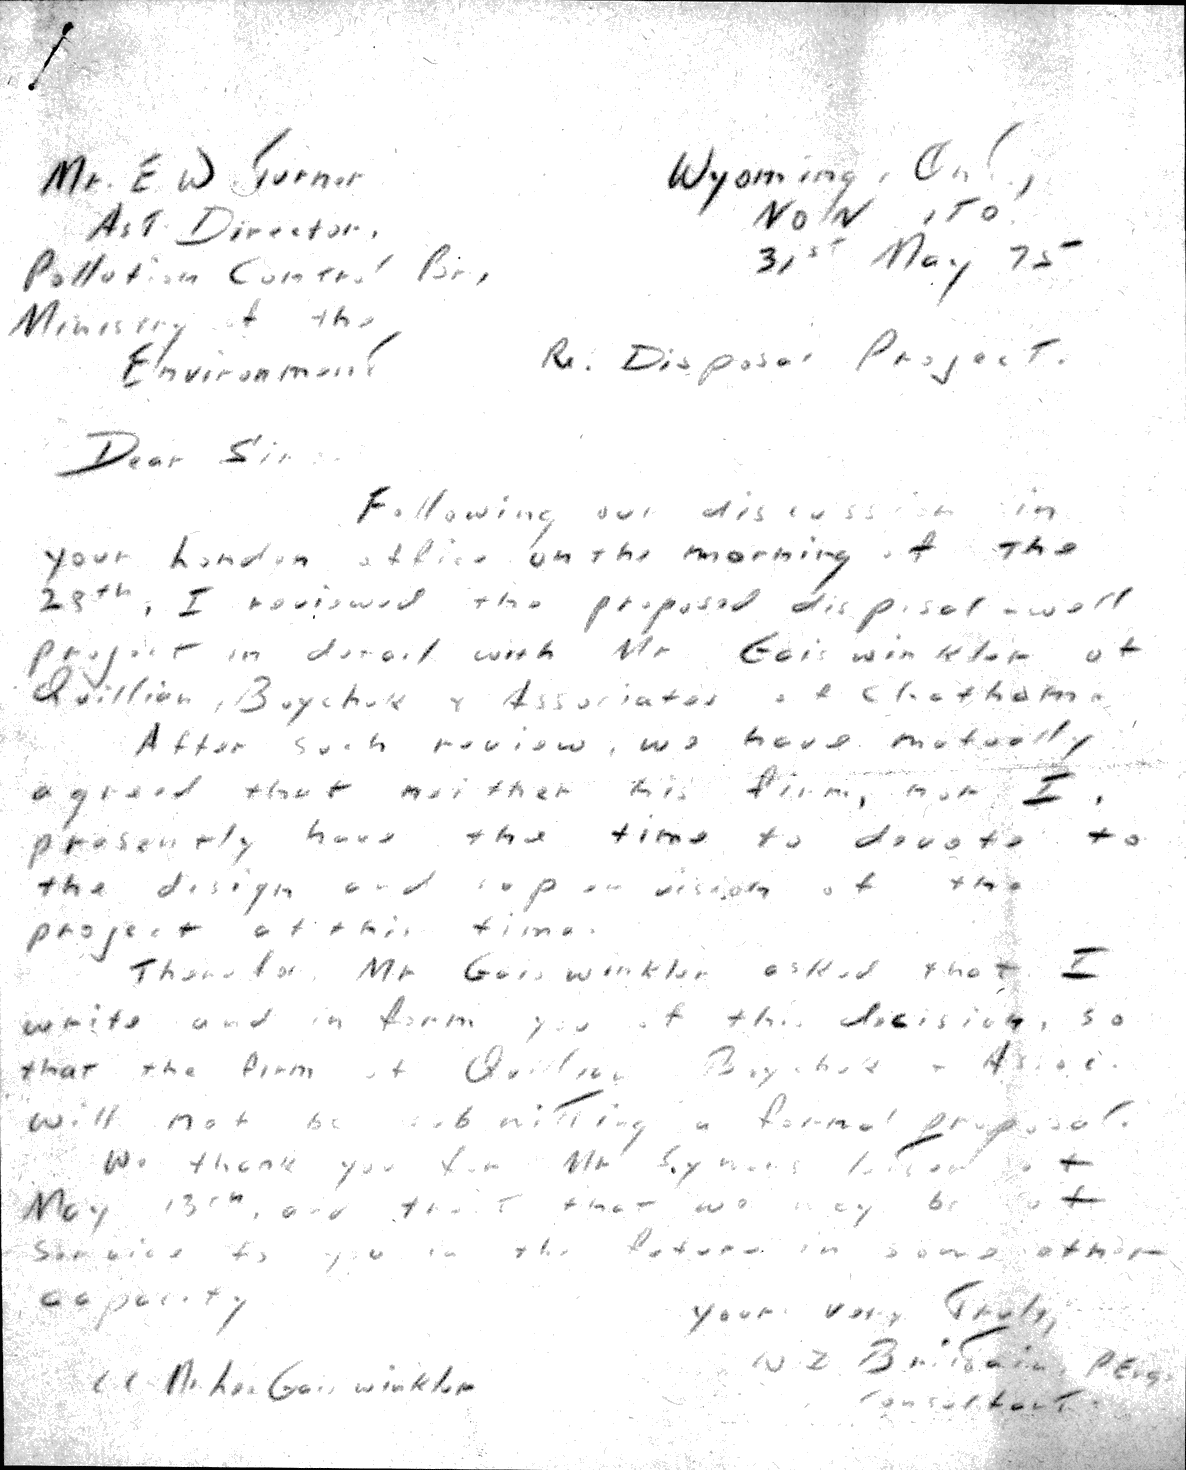 Mr. E W Turner
Ast. Director,
Pollution Control Br,
Ministry of the
Environment
Wyoming, Ont.,
NON, 1TO.
31st May 75
Re. Disposal Project.
Dear Sir:
Following our discussion in
your London office on the morning of the
28th, I reviewed the proposed disposal-well
project in detail with Mr Gaiswinkler of
Quillian, Boychuk & Associates of Chatham.
After such review, we have mutually
agreed that neither his firm, nor I,
presently have the time to devote to
the design and supervision of the
project at this time.
Therefor, Mr Gaiswinkler asked that I
write and inform you of this decision, so
that the firm of Quillian Boychuk & Assoc.
will not be submitting a formal proposal.
We thank you for Mr Symons letter of
May 13th, and trust that we may be of
service to you in the future in some other
capacity
Yours very Truly,
W I Brittain, P Eng.
Consultant.
cc Mr. Gaiswinkler